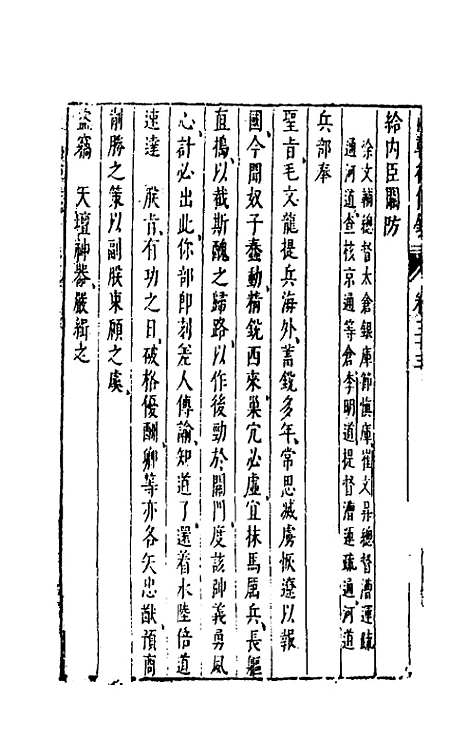 給內臣關防
徐文輔總督太倉銀庫節慎庫崔文昇總督漕運疏
通河道查核京通等倉李明道提督漕運疏通河道
兵部奉
聖旨毛文龍提兵海外蓄銳多年常思滅虜恢遼以報
國今聞奴子蠢動精銳西來巢穴必虛宜抹馬厲兵長驅
直搗以截斯醜之歸路以作後勁於關門度該帥義勇風
心計必出此你部即刻差人傳諭知道了還着水陸倍道
速達 朕肯有功之日破格優酬卿等亦各矢忠猷預商
削勝之策以副朕東顧之虞
盜竊 天壇神器嚴緝之